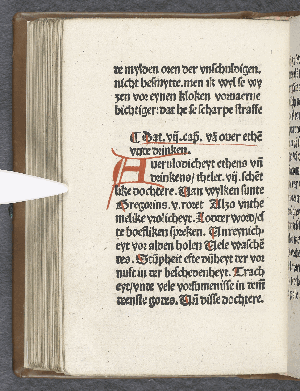 te mylden oren der vnschuldigen.
nicht besmytte. men ik wyl se wy
zen vor eynen kloken vornaeme
bichtiger: dat he se scharpe straffe
¶ Dat. vij. cap. vā ouer ethē
vnde drinken.
Auerulodicheyt ethens vñ
drinkens/ thelet. vij. schēt
like dochtere. Van wylken sunte
Gregorius. v. roret Alzo vnthe
melike vrolicheyt. Lodder word/ef
te boefliken spreken. Unreynich-
eyt vor alden bolen Vele waschē
des. Stupheit efte duheyt der vor
nuft in der beschedenheyt. Trach
eyt/vnde vele vorsumenisse in dem
deenste godes. Uñ disse dochtere.